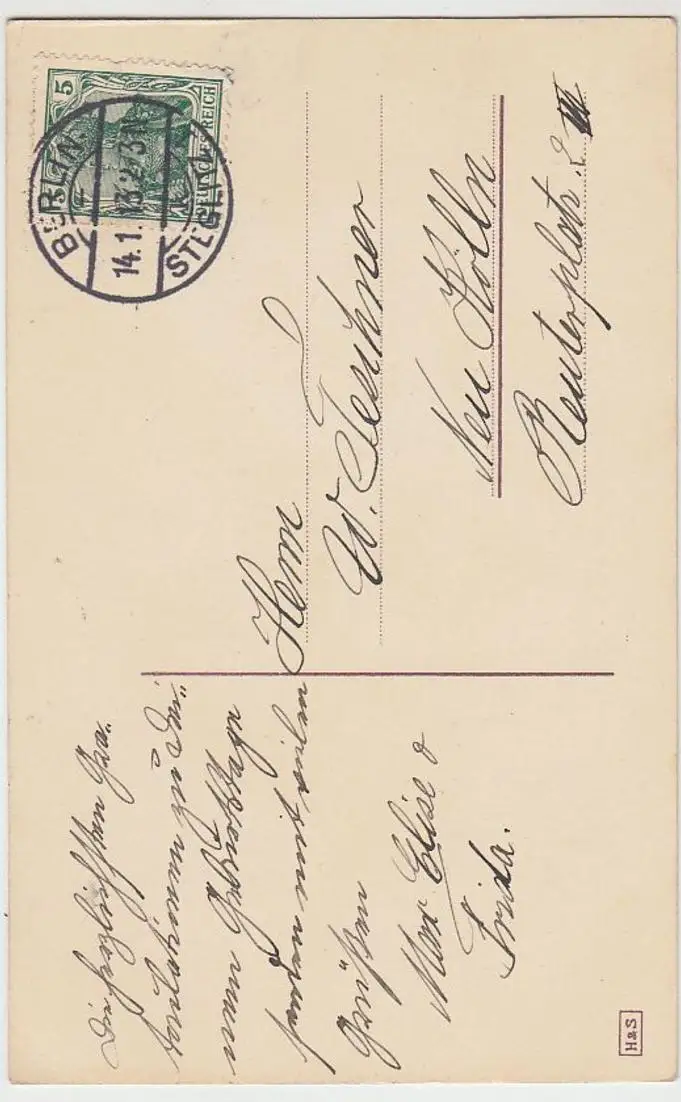 Die herzlichsten Gra-
tulationen zu Dei-
nem Geburtstage
senden mit vielen
Grüßen
Max Elise &
Frida.
5
DEUTSCHES REICH
BERLIN
STEGLITZ
14.1.13.2-3N.
Herrn
W. Teichner
Neu Kölln
Reuterplatz 2 III
H&S